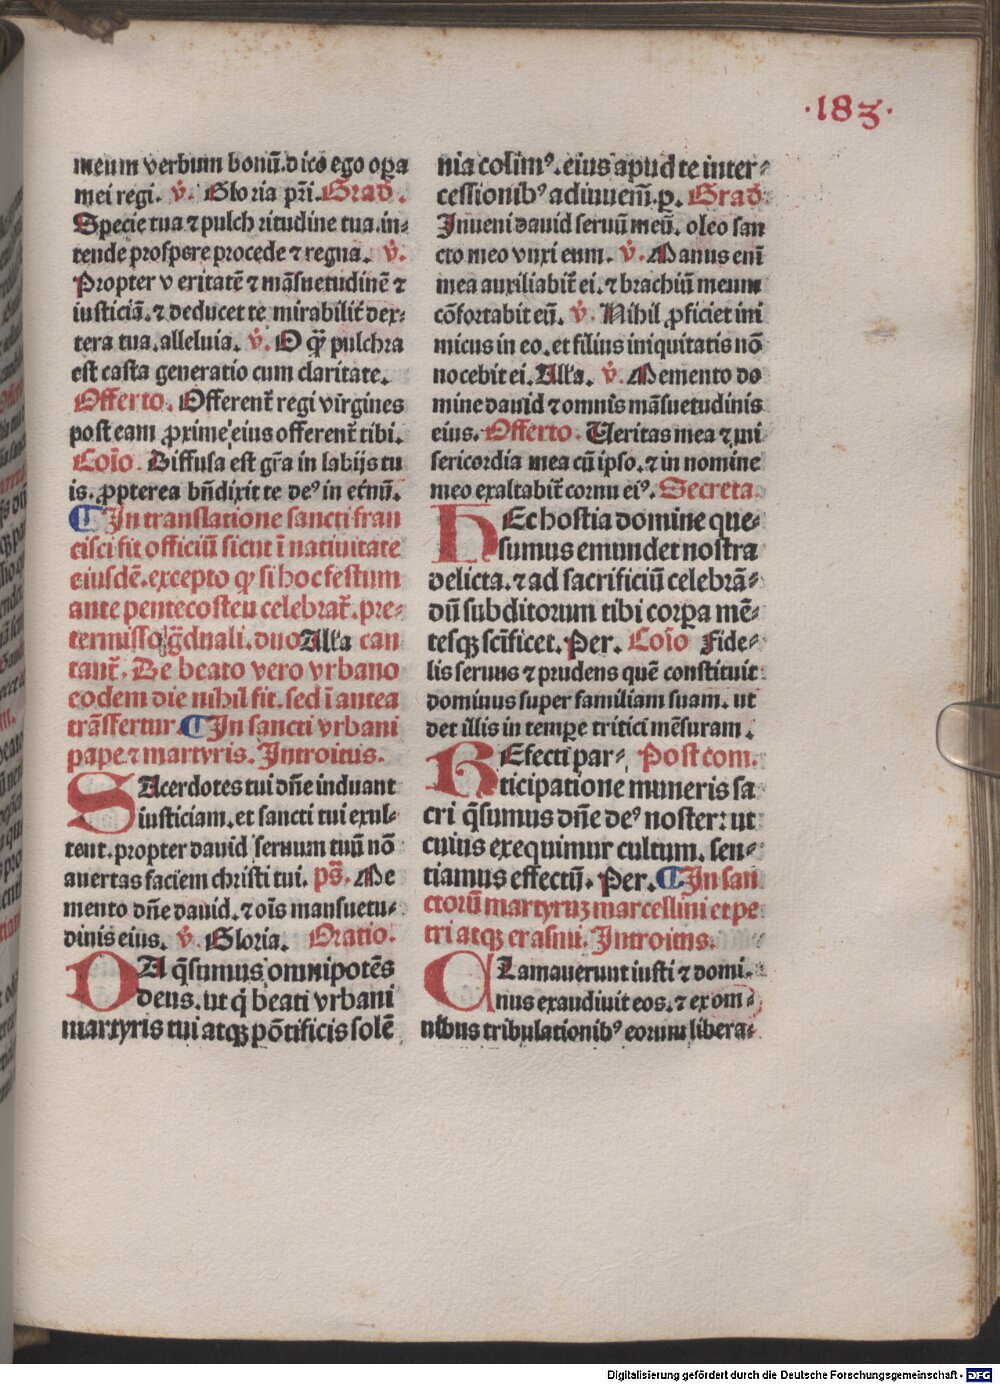 ·183·
meum verbum bonū.dico ego oꝑa
mei regi. v̇. Gloria pr̄i. Grad̄.
Specie tua ⁊ pulchritudine tua.in⸗
tende prospere procede ⁊ regna. v̇.
Propter veritatē ⁊ māsuetudinē ⁊
iusticiā.⁊ deducet te mirabilit̄ dex⸗
tera tua.alleluia. v̇. O qꝫ pulchra
est casta generatio cum claritate.
Offerto. Offerent̄ regi virgines
post eam ꝓxime eius offerent̄ tibi.
Cōio. Diffusa est gr̄a in labijs tu
is.ꝓpterea bn̄dixit te deꝰ in et̄nū.
¶ In translatione sancti fran
cisci fit officiū sicut ī natiuitate
eiusdē.excepto ꝙ si hoc festum
ante pentecosten celebrat̄.pre⸗
termisso g̈dnali.duo Alla can
tant̄. De beato vero vrbano
eodem die nihil fit.sed ī antea
trāsfertur ¶ In sancti vrbani
pape ⁊ martyris. Introitus.
SAcerdotes tui dn̄e induant
iusticiam.et sancti tui exul⸗
tent.propter dauid seruum tuū nō
auertas faciem christi tui. ps̄. Me
mento dn̄e dauid.⁊ oīs mansuetu⸗
dinis eius. v̇. Gloria. Oratio.
DA q̄sumus omnipotēs
deus.ut q̇ beati vrbani
martyris tui atqꝫ pōtificis solē
nia colimꝰ.eius apud te inter⸗
cessionibꝰ adiuuem̄.ꝑ. Grad̄
Inueni dauid seruū meū. oleo san
cto meo vnxi eum. v̇. Manus enī
mea auxiliabit̄ ei.⁊ brachiū meum
cōfortabit eū. v̇. Nihil ꝓficiet ini
micus in eo.et filius iniquitatis nō
nocebit ei. Alla. v̇. Memento do
mine dauid ⁊ omnis māsuetudinis
eius. Offerto. Ueritas mea ⁊ mi
sericordia mea cū ipso.⁊ in nomine
meo exaltabit̄ cornu eiꝰ. Secreta
HEc hostia domine que⸗
sumus emundet nostra
delicta.⁊ ad sacrificiū celebrā⸗
dū subditorum tibi corꝑa mē⸗
tesqꝫ sc̄ificet. Per. Cōio Fide⸗
lis seruus ⁊ prudens quē constituit
dominus super familiam suam. ut
det illis in tempe tritici mēsuram.
REfecti par⸗ Post com.
ticipatione muneris sa
cri q̄sumus dn̄e deꝰ noster: ut
cuius exequimur cultum. sen⸗
tiamus effectū. Per. ¶ In san
ctorū martyruꝫ marcellini et pe
tri atqꝫ erasmi. Introitus.
CLamauerunt iusti ⁊ domi⸗
nus exaudiuit eos.⁊ ex om⸗
nibus tribulationibꝰ eorum libera⸗
Digitalisierung gefördert durch die Deutsche Forschungsgemeinschaft - DFG